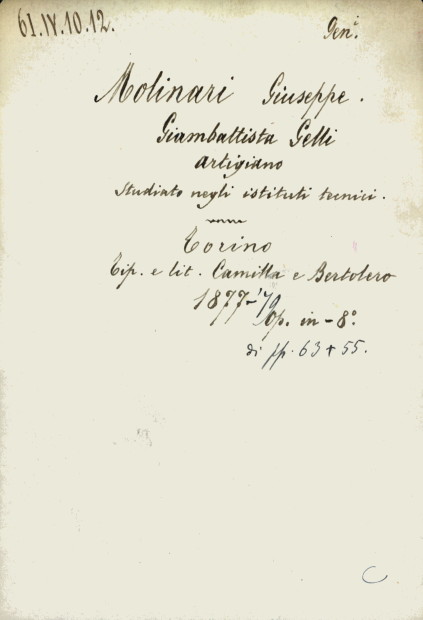 61.IV.10.12.
Molinari Giuseppe.
Giambattista Gelli
artigiano
Studiato negli istituti tecnici.
Torino
Tip. e lit. Camilla e Bertolero
1877-'79
Op. in-8°.
di pp. 63 + 55.
C